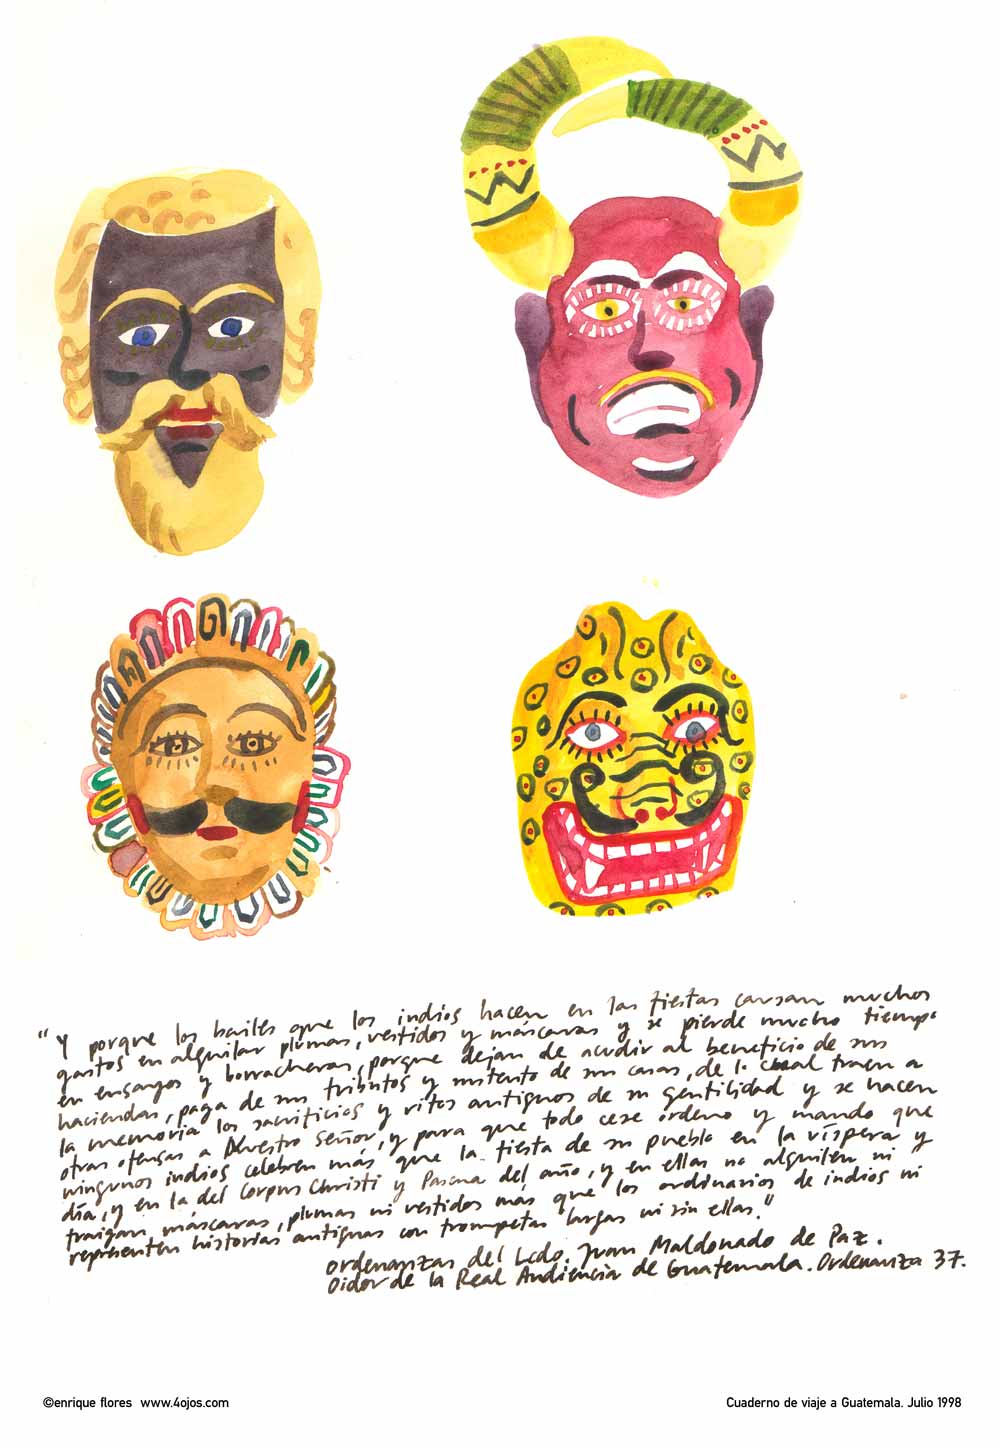 "Y porque los bailes que los indios hacen en las fiestas causan muchos
gastos en alquilar plumas, vestidos y máscaras y se pierde mucho tiempo
en ensayos y borracheras, porque dejan de acudir al beneficio de sus
haciendas, paga de sus tributos y sustento de sus casas, de lo cual traen a
la memoria los sacrificios y ritos antiguos de su gentilidad y se hacen
otras ofensas a Nuestro Señor, y para que todo cese ordeno y mando que
ningunos indios celebren más que la fiesta de su pueblo en la víspera y
día, y en la del Corpus Christi y Pascua del año, y en ellas no alquilen ni
traigan máscaras, plumas ni vestidos más que los ordinarios de indios ni
representen historias antiguas con trompetas largas ni sin ellas."
ordenanzas del Lcdo. Juan Maldonado de Paz.
Oidor de la Real Audiencia de Guatemala. Ordenanza 37.
©enrique flores www.4ojos.com
Cuaderno de viaje a Guatemala. Julio 1998